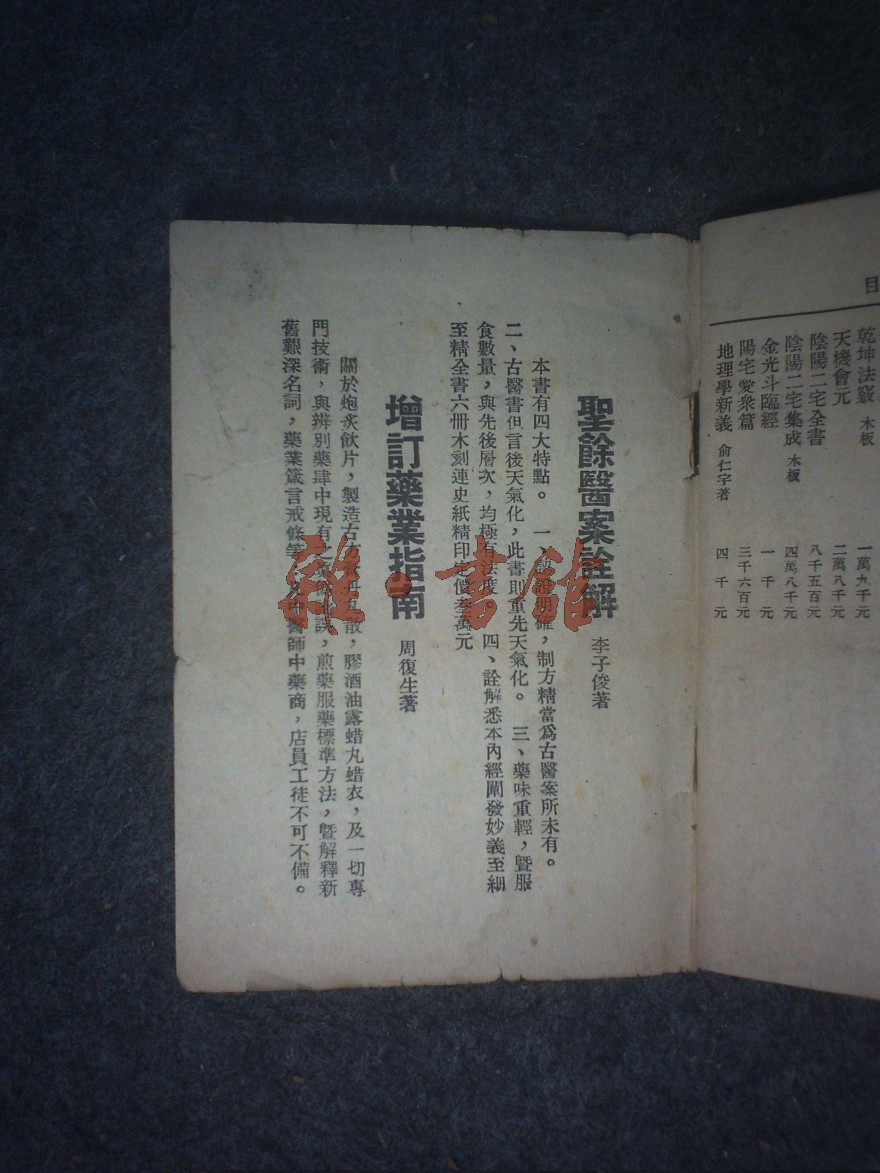 目
乾坤法竅 木板 一萬九千元
天機會元 二萬八千元
陰陽二宅全書 八千五百元
陰陽二宅集成 木板 四萬八千元
金光斗臨經 一千元
陽宅愛衆篇 三千六百元
地理學新義 俞仁宇著 四千元
聖餘醫案詮解 李子俊著
本書有四大特點。 一、明確，制方精當爲古醫案所未有。
二、古醫書但言後天氣化，此書則重先天氣化。 三、藥味重輕，暨服
食數量，與先後層次，均極有法度 四、詮解悉本內經闡發妙義至細
至精全書六册木刻連史紙精印定價叁萬元
增訂藥業指南 周復生著
關於炮炙飲片，製造古方散，膠酒油露蜡丸蜡衣，及一切專
門技術，與辨別藥肆中現有之誤，煎藥服藥標準方法，暨解釋新
舊艱深名詞，藥業箴言戒條等，醫師中藥商，店員工徒不可不備。
雅·書館